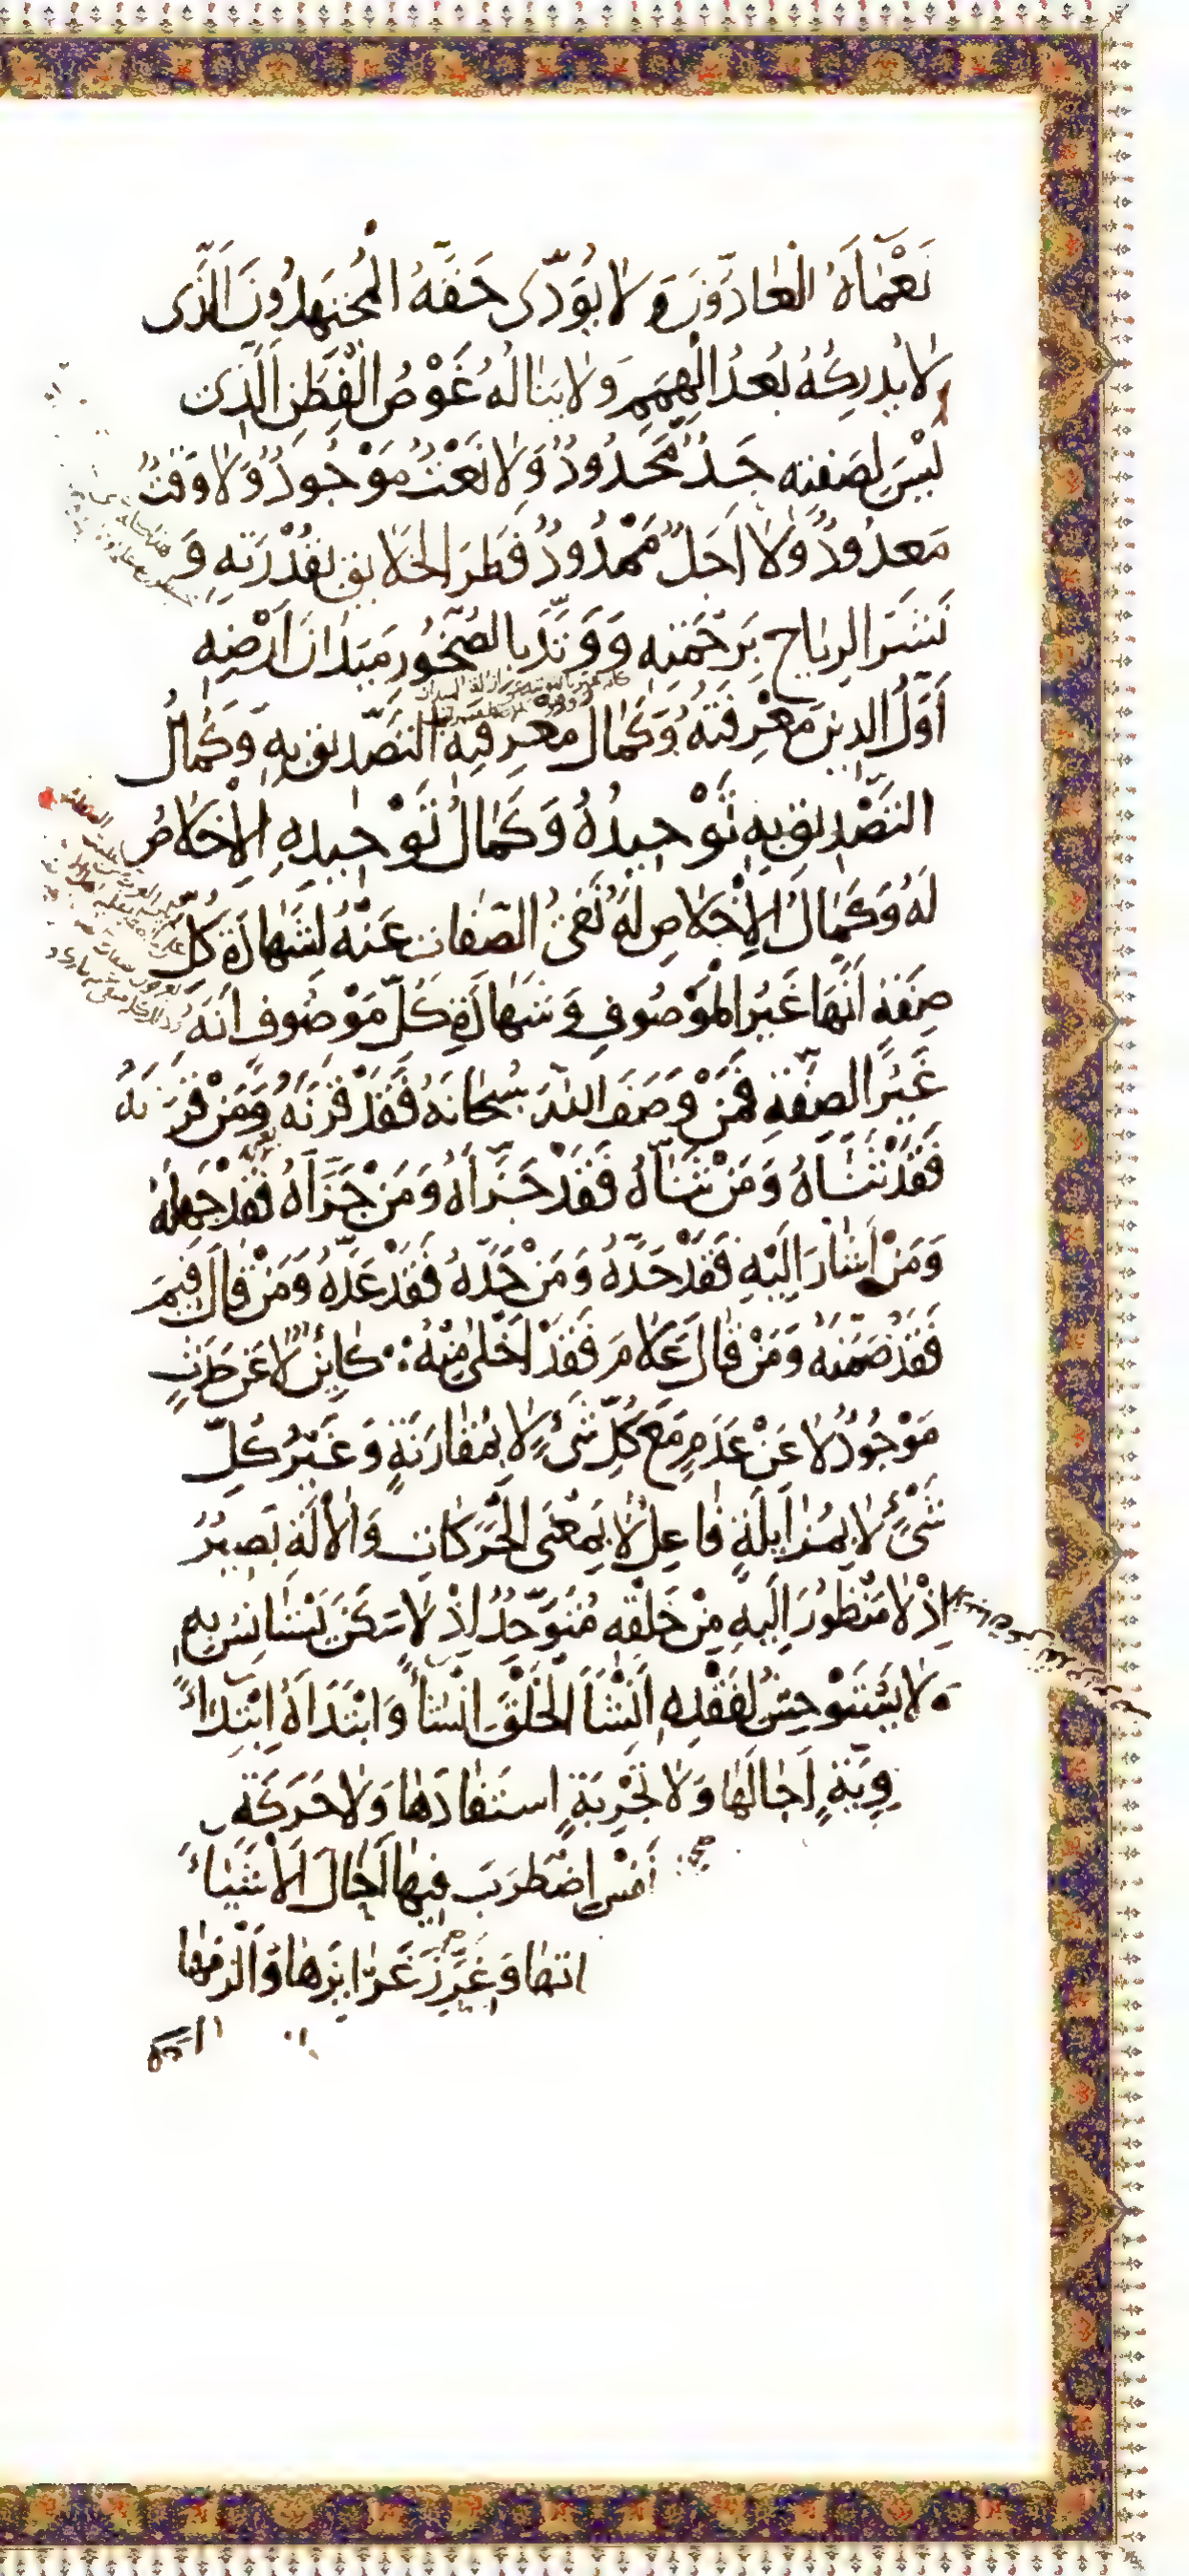 نَعْمَاۤءَهُ الْعَادُّوْنَ وَ لَا يُؤَدِّى حَقَّهُ الْمُجْتَهِدُوْنَ الَّذِى
لَا يُدْرِكُهُ بُعْدُ الْهِمَمِ وَلَا يَنَالُهُ غَوْصُ الْفِطَنِ الَّذِى
لَيْسَ لِصِفَتِهِ حَدٌّ مَّحْدُوْدٌ وَّلَا نَعْتٌ مَوْجُوْدٌ وَّلَا وَقْتٌ
مَعْدُوْدٌ وَّلَا اَجَلٌ مَّمْدُوْدٌ فَطَرَ الْخَلَائِقَ بِقُدْرَتِهِ وَ
نَشَرَ الرِّيَاحَ بِرَحْمَتِهِ وَ وَتَّدَ بِالصُّخُوْرِ مَيَدَانَ اَرْضِهِ
اَوَّلُ الدِّيْنِ مَعْرِفَتُهُ وَكَمَالُ مَعْرِفَتِهِ التَّصْدِيْقُ بِهِ وَكَمَالُ
التَّصْدِيْقِ بِهِ تَوْحِيْدُهُ وَكَمَالُ تَوْحِيْدِهِ الْاِخْلَاصُ
لَهُ وَكَمَالُ الْاِخْلَاصِ لَهُ نَفْىُ الصِّفَاتِ عَنْهُ لِشَهَادَةِ كُلِّ
صِفَةٍ اَنَّهَا غَيْرُ الْمَوْصُوْفِ وَ شَهَادَةِ كُلِّ مَوْصُوْفٍ اَنَّهُ
غَيْرُ الصِّفَةِ فَمَنْ وَصَفَ اللهَ سُبْحَانَهُ فَقَدْ قَرَنَهُ وَمَنْ قَرَنَهُ
فَقَدْ ثَنَّاهُ وَمَنْ ثَنَّاهُ فَقَدْ جَزَّاَهُ وَمَنْ جَزَّاَهُ فَقَدْ جَهِلَهُ
وَمَنْ اَشَارَ اِلَيْهِ فَقَدْ حَدَّهُ وَمَنْ حَدَّهُ فَقَدْ عَدَّهُ وَمَنْ قَالَ فِيْمَ
فَقَدْ ضَمَّنَهُ وَمَنْ قَالَ عَلَامَ فَقَدْ اَخْلٰى مِنْهُ ∴ كَائِنٌ لَّا عَنْ حَدَثٍ
مَوْجُوْدٌ لَا عَنْ عَدَمٍ مَعَ كُلِّ شَىْءٍ لَا بِمُقَارَنَةٍ وَ غَيْرُ كُلِّ
شَىْءٍ لَا بِمُزَايَلَةٍ فَاعِلٌ لَّا بِمَعْنَى الْحَرَكَاتِ وَالْاٰلَةِ بَصِيْرٌ
اِذْ لَا مَنْظُوْرَ اِلَيْهِ مِنْ خَلْقِهِ مُتَوَحِّدٌ اِذْ لَا سَكَنَ يَسْتَانِسُ بِهِ
وَلَا يَسْتَوْحِشُ لِفَقْدِهِ اَنْشَاَ الْخَلْقَ اِنْشَاءً وَابْتَدَاَهُ ابْتِدَاءً
رَوِيَّةٍ اَجَالَهَا وَلَا تَجْرِبَةٍ اسْتَفَادَهَا وَلَا حَرَكَةٍ
نَفْسٍ اضْطَرَبَ فِيْهَا اَحَالَ الْاَشْيَاءَ
اتِهَا وَ غَرَّزَ غَرَائِزَهَا وَاَلْزَمَهَا